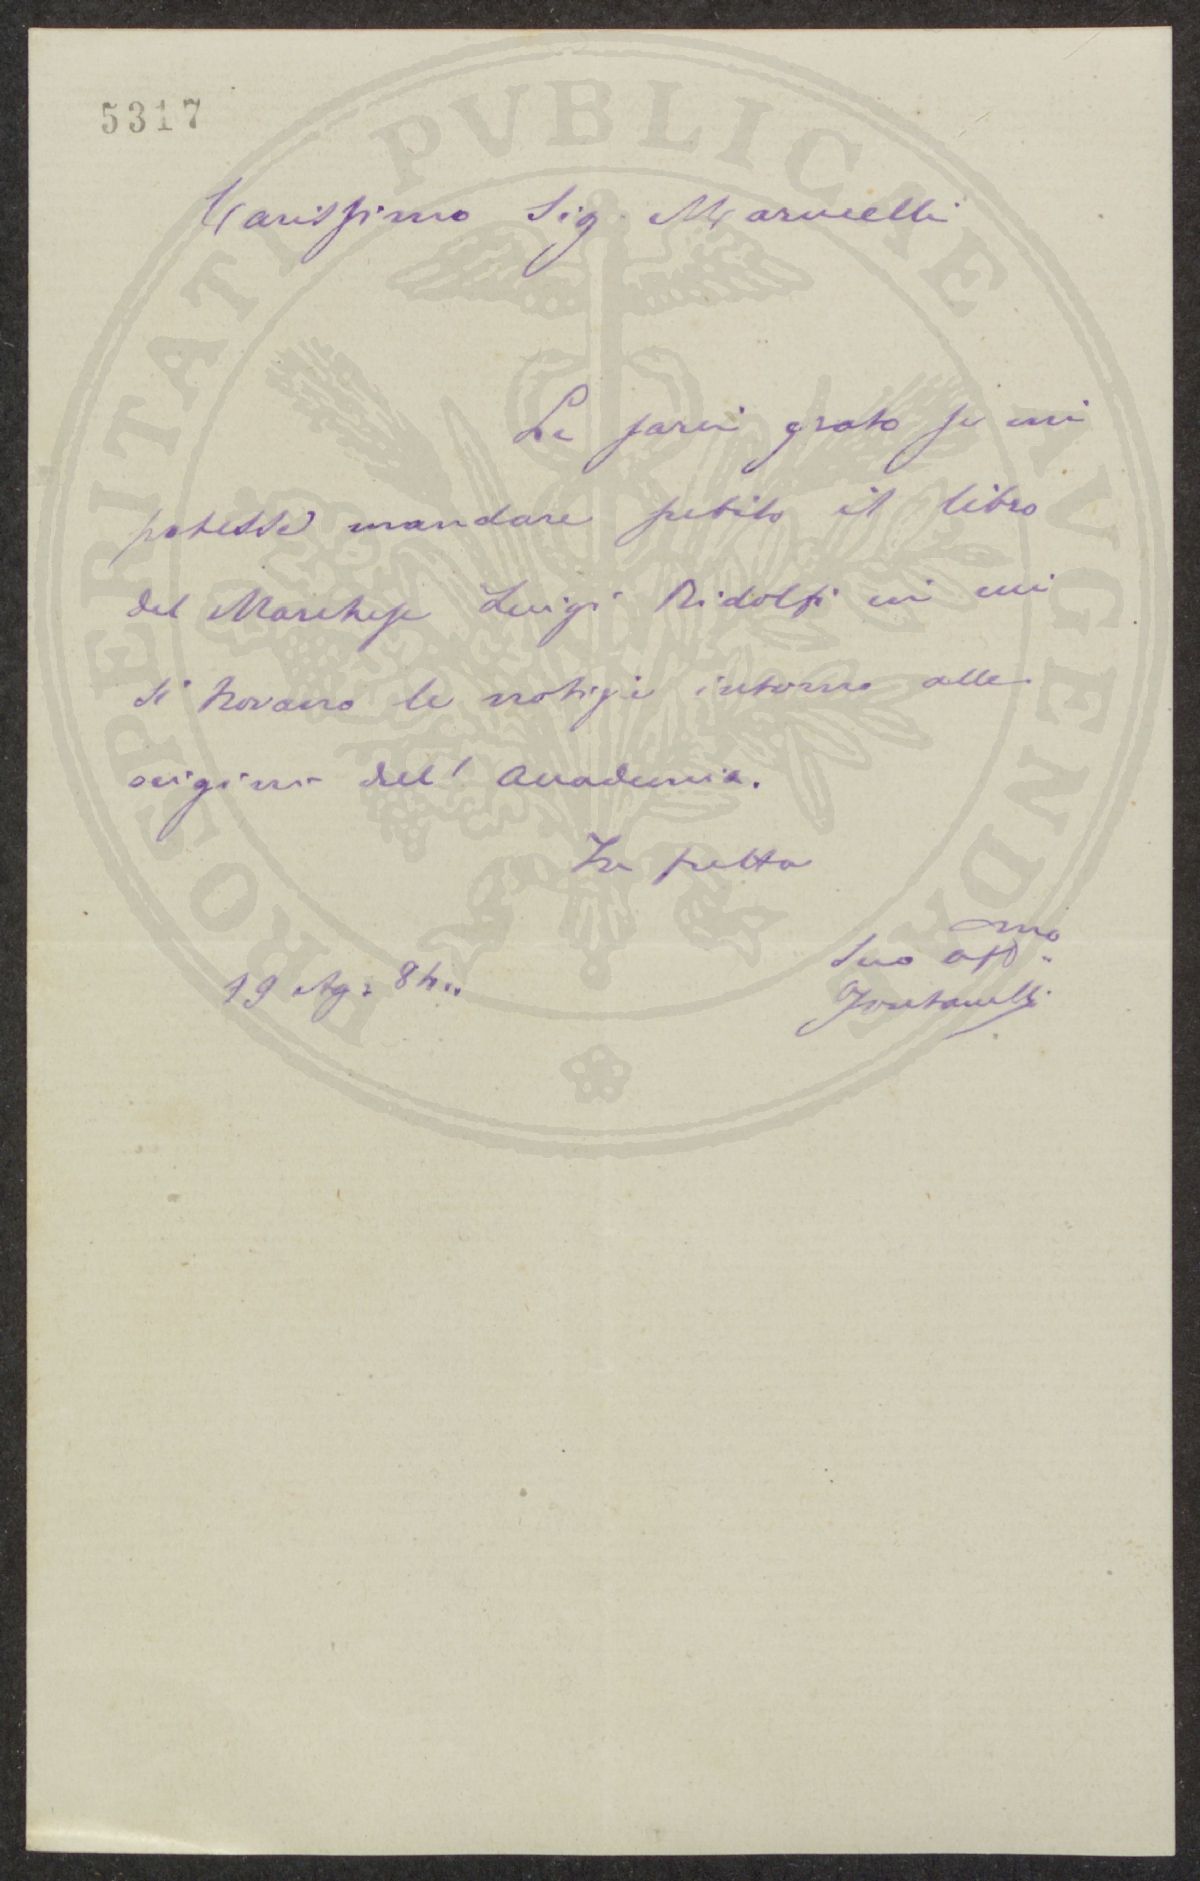 5317
Carissimo Sig. Marucelli
Le sarei grato se mi
potesse mandare subito il libro
del Marchese Luigi Ridolfi in cui
si trovano le notizie intorno alle
origini dell' Accademia.
In fretta
Suo aff.mo
19 Ag. 84..
Fontanelli
PROSPERITATI PVBLICAE AVGENDAE